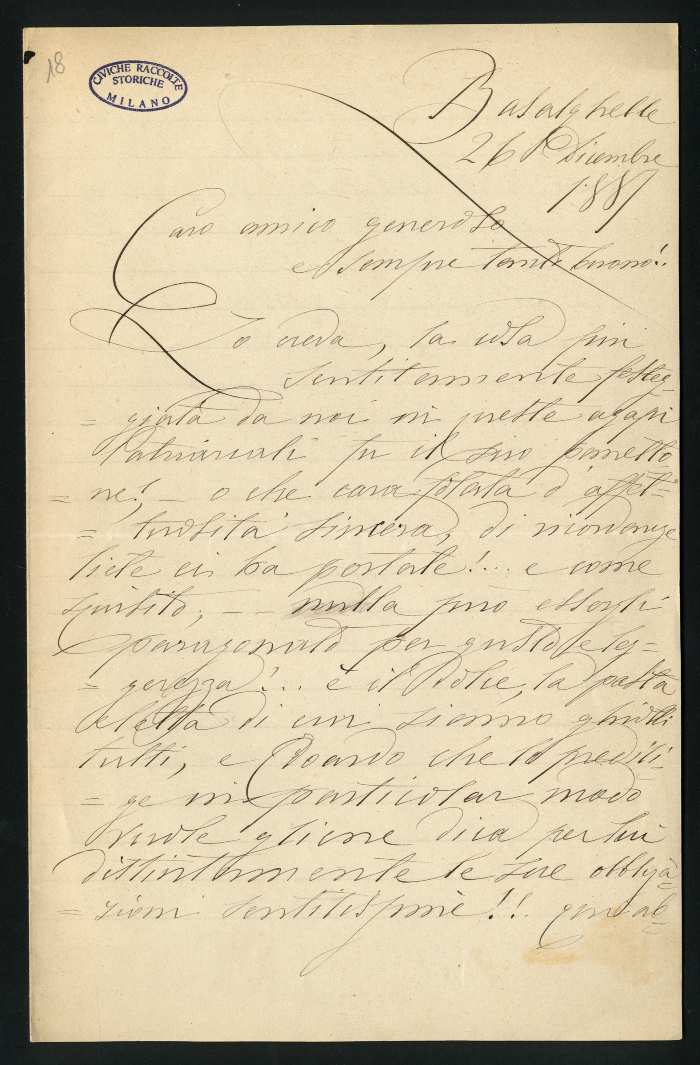 18
CIVICHE RACCOLTE
STORICHE
MILANO
Basalghelle
26 Dicembre
1887
Caro amico generoso
e sempre tanto buono!
Lo creda, la cosa più
sentitamente festeg=
= giata da noi in queste agapi
Patriarcali fu il suo panetto
= ne! - o che cara fiatata d'affet=
= tuosità sincera, di ricordanze
liete ci ha portate!... e come
squisito; - - nulla può essergli
paragonato per gusto e leg=
= gerezza!... è il Dolce, la pasta
eletta di cui siamo ghiotti
tutti, e Edoardo che lo predili=
= ge in particolar modo
vuole gliene dica per lui
distintamente le sue obbliga=
= zioni sentitissime!!